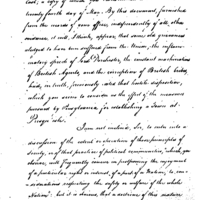 cast, a copy of which you
twenty fourth day of May. By this document, furnished
from the records of your office, independently of all other
evidence, it will, I think, appear, that some old grievances
alledged to have been suffered from the Union, the inflam-
matory speech of Lord Dorchester, the constant machinations
of British Agents, and the corruption of British bribes,
had, in truth, previously
which you seem to consider as the effect of the measures
pursued by Pennsylvania for establishing a Town at
Presqu'isle.
I am not inclined, Sir, to enter into a
discussion of the extent or alteration of those principles of
society, or of that practice of political communities, which, you
observe, will frequently concur in postponing the enjoyment
of a particular right or interest, of a part of a Nation, to con-
siderations respecting the safety or welfare of the whole
Nation: but it is obvious, that a decision of this nature